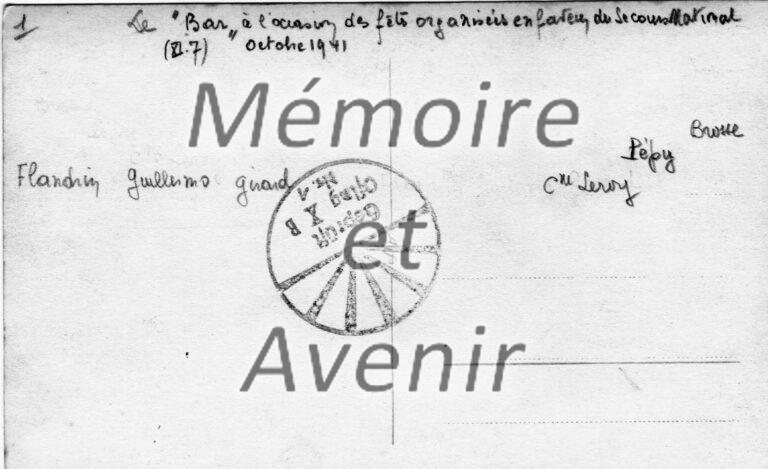 1
Le "Bar", à l'occasion des fêts organisées en faveur du Secours National
(XI.7) Octobre 1941
Mémoire
Brosse
Pépy
Flandrin Guillermo Girard
Cne Leroy
Geprüft
Oflag X B
Nr. 1
et
Avenir